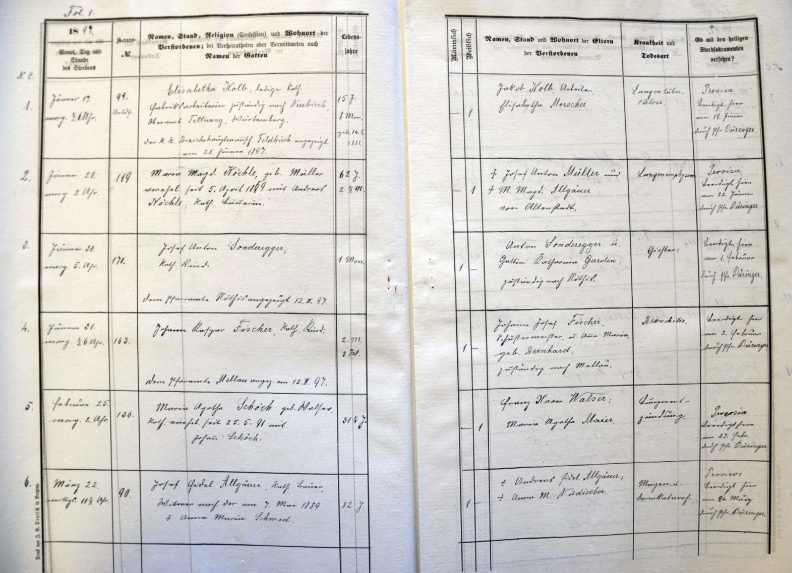 Fol. 1.
1897.
Monat, Tag und
Stunde
des Sterbens
Haus-
№
Namen, Stand, Religion (Confession) und Wohnort der
Verstorbenen; bei Verheiratheten oder Verwittweten auch
Namen der Gatten
Lebens-
jahre
Männlich
Weiblich
Namen, Stand und Wohnort der Eltern
der Verstorbenen
Krankheit und
Todesart
Ob mit den heiligen
Sterbsakramenten
versehen?
1.
Jänner 17.
Elisabetha Kolb, ledige kath.
Fabriksarbeiterin zuständig nach
Oberamt Tettnang, Würtemberg.
der k. k. Bezirkshauptmannsch. Feldkirch angezeigt
am 21. Jänner 1897.
15 J.
8 Mon.
Jakob Kolb, Arbeiter
Elisabetha Morscher
1
Provisa
beerdigt hier
am 19. Jänner
durch Pfr. Düringer.
2.
Jänner 20.
morg. 2 Uhr.
119
Maria Magd. Köchle, geb. Müller
verehel. seit 5. April 1869 mit Andreas
Köchle, kath.
62 J.
† Josef Anton Müller und
† M. Magd. Allgäuer
von Altenstadt.
1
Provisa
beerdigt hier
am 22. Jänner
durch Pfr. Düringer.
3.
Jänner 30.
morg. 5. Uhr.
170.
Josef Anton Sonderegger,
kath. Kind.
dem Pfarramte Röthis angezeigt 12. II. 97.
1 Mon.
1
Anton Sonderegger u.
Gattin Katharina
zuständig nach Röthis.
Gichter.
beerdigt hier
am 1. Februar
durch Pfr. Düringer.
4.
Jänner 31.
morg. ½6 Uhr.
163.
Johann Kaspar Fischer, kath. Kind.
dem Pfarramte Mellau angez. am 12. II. 97.
2. M.
1
Johann Josef Fischer,
Schustermeister, u. Ana Maria,
geb. Bernhard.
zuständig nach Mellau.
Bronchitis.
beerdigt hier
am 2. Februar
durch Pfr. Düringer.
5.
Februar 25.
morg. 2. Uhr.
136.
Maria Agatha Schöch geb. Walser
kath. verehel. seit 25. 5. 91 mit
Johann Schöch.
31½ J.
1
Franz Xaver Walser;
Maria Agatha Maier
Lungenent-
zündung.
Provisa
beerdigt hier
am 27. Febr.
durch Pfr. Düringer
6.
März 22.
90.
Josef Fidel Allgäuer kath. Bauer.
Witwer nach der am 7. Mai 1889
† Anna Maria Schmed.
82 J.
1
† Andreas Fidel Allgäuer,
† Anna M.
Magen u.
Darmkatarrh
Provisus
beerdigt hier
am 24. März
durch Pfr. Düringer.